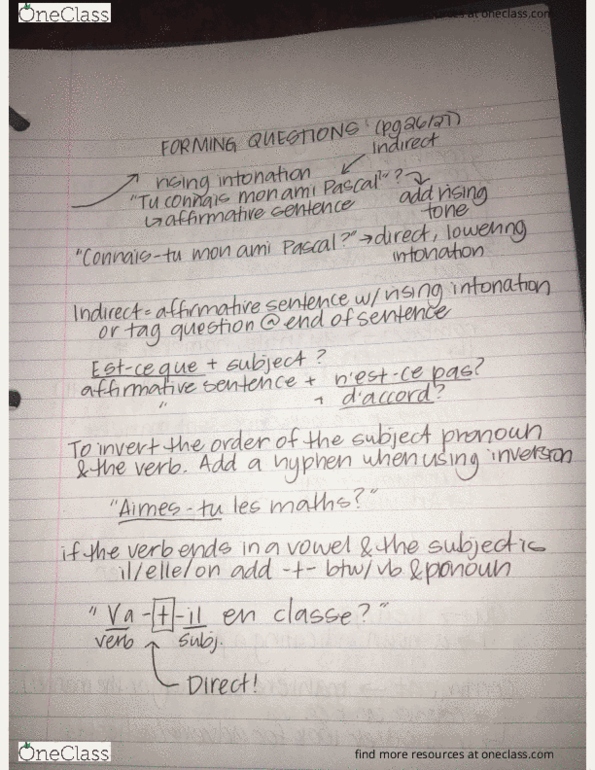 OneClass
resources at oneclass.com
FORMING QUESTIONS (pg26/27)
indirect
rising intonation
"Tu connais mon ami Pascal" ?
↳ affirmative sentence
add rising
tone
"Connais-tu mon ami Pascal?" → direct, lowering
intonation
Indirect = affirmative sentence w/ rising intonation
or tag question @ end of sentence
Est-ce que + subject ?
affirmative sentence + n'est-ce pas?
" + d'accord?
To invert the order of the subject pronoun
& the verb. Add a hyphen when using inversion
"Aimes-tu les maths?"
if the verb ends in a vowel & the subject is
il/elle/on add -t- btw/ vb & ponoun
"Va-t-il en classe?"
verb subj.
Direct!
OneClass
find more resources at oneclass.com